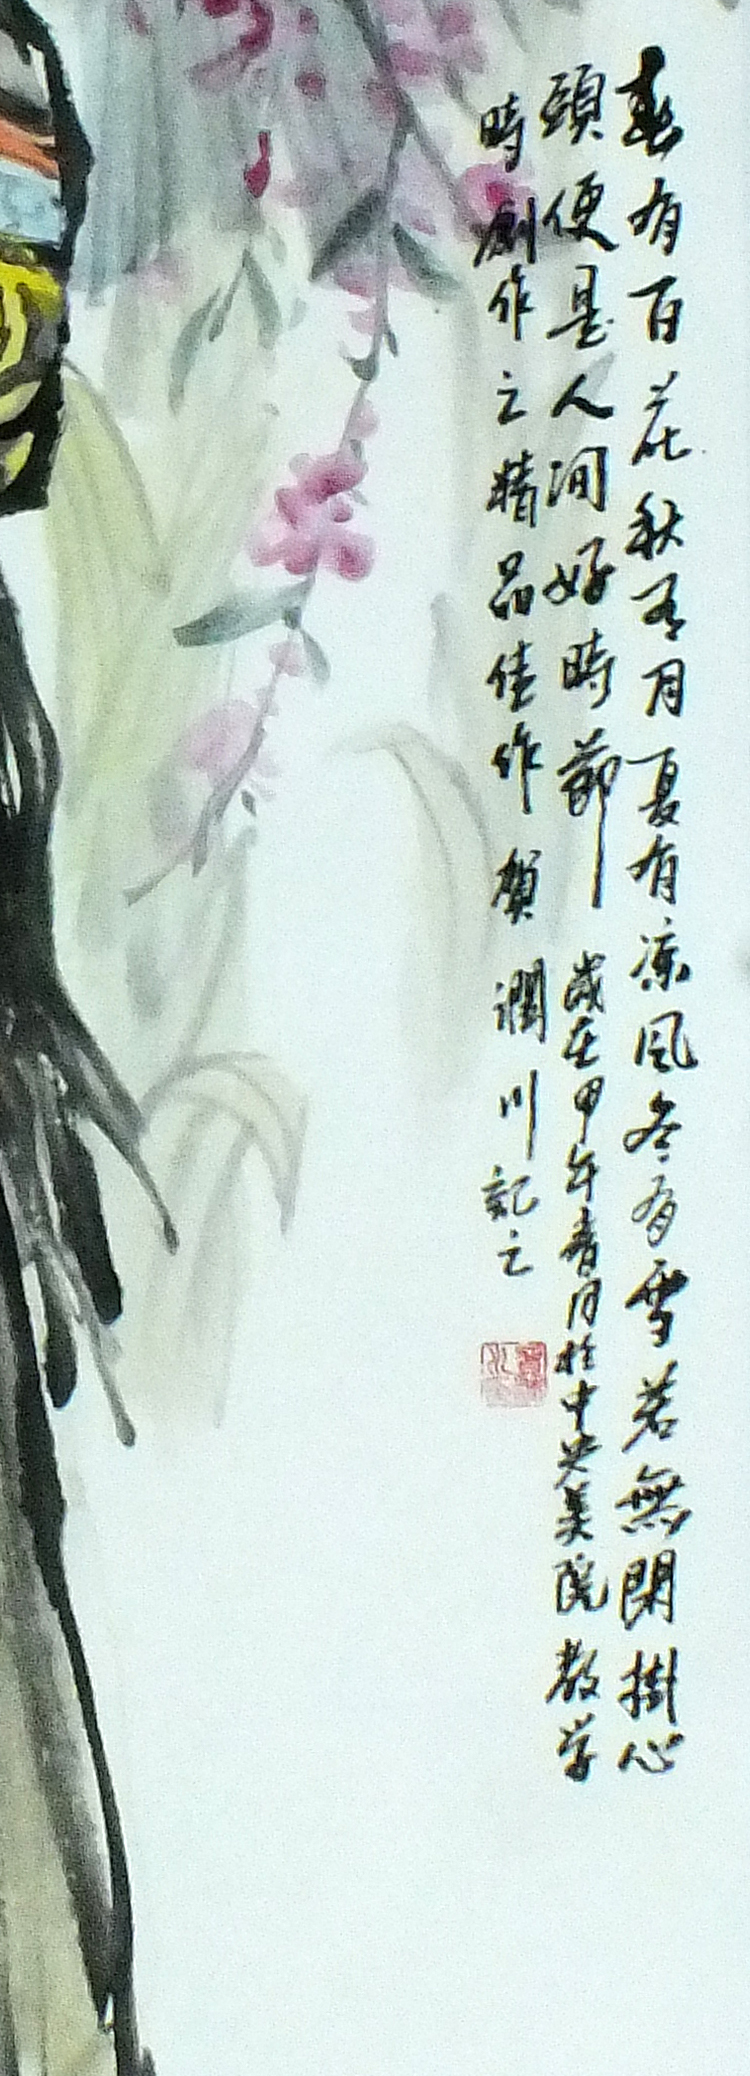 春有百花秋有月夏有凉风冬有雪若無閑掛心
頭便是人间好時節 歲在甲午春月於中央美院教学
時創作之精品佳作 賀潤川記之